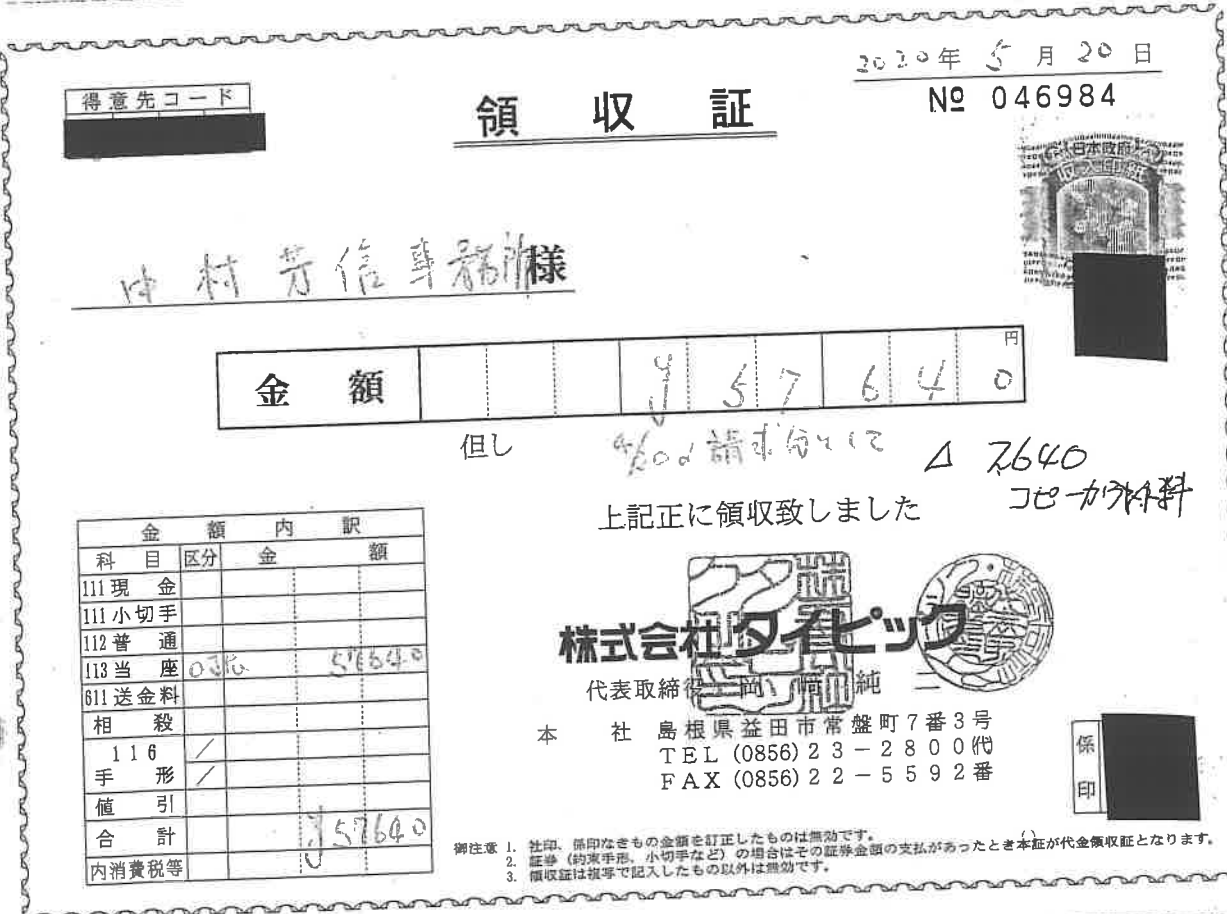 2020年 5月 20日
得意先コード
領収証
№ 046984
日本政府
収入印紙
中村芳信事務所様
金額 ¥57640円
但し 4/20〆請求分として
△ 7,640
コピーカウント料
上記正に領収致しました
金額内訳
科目 区分 金額
111 現金
111 小切手
112 普通
113 当座 57640
611 送金料
相殺
116 /
手形 /
値引
合計 ¥57640
内消費税等
株式会社タイピック
代表取締役 岡﨑純二
本社 島根県益田市常盤町7番3号
TEL (0856)23-2800㈹
FAX (0856)22-5592番
係印
御注意 1. 社印、係印なきもの金額を訂正したものは無効です。
2. 証券(約束手形、小切手など)の場合はその証券金額の支払があったとき本証が代金領収証となります。
3. 領収証は複写で記入したもの以外は無効です。